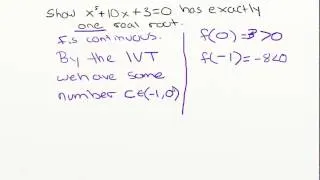 Show x⁵+10x+3=0 has exactly
one real root.
f is continuous.
By the IVT
we have some
number c∈(-1,0)
f(0)=3>0
f(-1)=-8<0